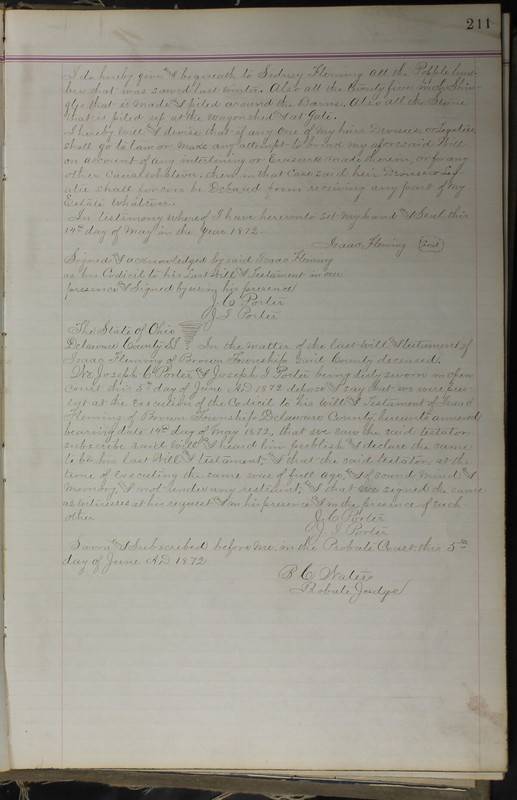 211
I do hereby give & bequeath to Sidney Fleming all the Popple lum-
ber that was sawed last winter. Also all the Twenty five inch Shin-
gles that is made & piled around the Barns. Also all the Stone
that is piled up at the Wagonshed & at Gate.
I hereby Will & devise that if any one of my heirs Devisees or Legatees
shall go to law or make any attempt to brake my aforesaid Will
on account of any interlining or Erasures made therein, or for any
other Cause whatever, then in that Case said heir Devisee or Leg-
atie shall forever be Debared from receiving any part of my
Estate whatever.
In testimony whereof I have hereunto set my hand & Seal this
14th day of May in the year 1872
Isaac Fleming Seal
Signed & acknowledged by said Isaac Fleming
as his Codicil to his Last Will & Testament in our
presence & Signed by us in his presence
J. C. Porter
J. I. Porter
The State of Ohio
Delaware County SS In the matter of the last will & testament of
Isaac Fleming of Brown Township said County deceased.
We, Joseph C. Porter & Joseph I Porter being duly sworn in open
Court this 5th day of June AD 1872 depose & say that we were pres-
ent at the Execution of the Codicil to his Will & Testament of Isaac
Fleming of Brown Township Delaware County, hereunto annexed
bearing date 14th day of May 1872, that we saw the said testator
subscribe said Will & heard him publish & declare the same
to be his last Will & testament, & that the said testator, at the
time of executing the same was of full age, & of sound mind &
memory, & not under any restraint, & that we signed the same
as witnesses at his request & in his presence & in the presence of each
other
J. C. Porter
J. I. Porter
Sworn & Subscribed before me, in the Probate Court this 5th
day of June AD 1872
B. C. Waters
Probate Judge